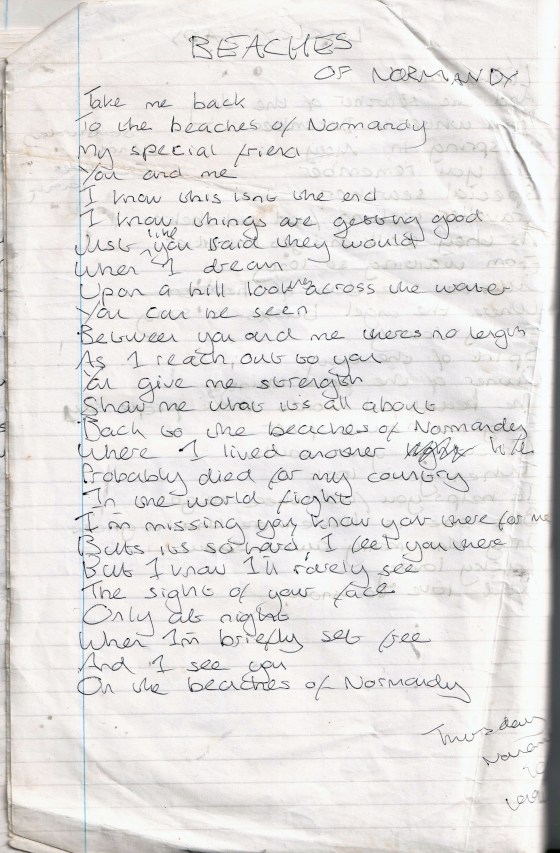 BEACHES
OF NORMANDY
Take me back
To the beaches of Normandy
My special friend
You and me
I know this isnt the end
I know things are getting good
Just like you said they would
When I dream
Upon a hill look across the water
You can be seen
Between you and me theres no length
As I reach out to you
You give me strength
Show me what its all about
Back to the beaches of Normandy
Where I lived another life
Probably died for my country
In the world fight
I'm missing you, know your there for me
But its so hard, I feel you there
But I know I'll rarely see
The sight of your face
Only at night
When I'm briefly set free
And I see you
On the beaches of Normandy
Thursday